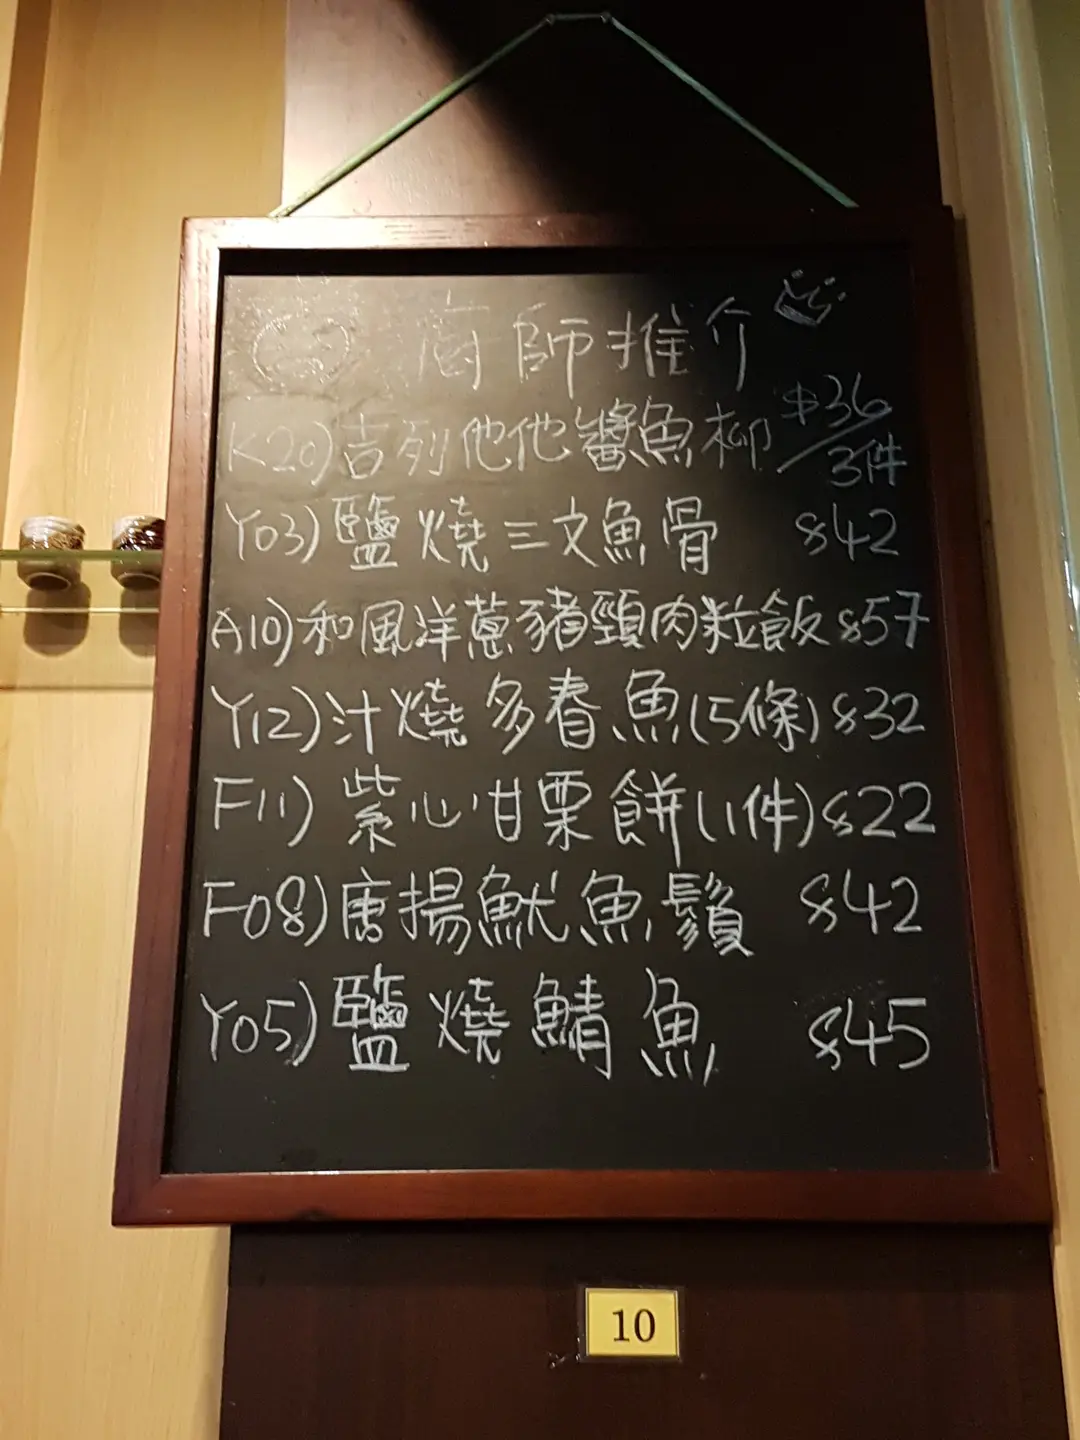 廚師推介
K20)吉列他他醬魚柳 $36/3件
Y03)鹽燒三文魚骨 $42
A10)和風洋蔥豬頸肉粒飯 $57
Y12)汁燒多春魚(5條) $32
F11)紫心甘栗餅(1件) $22
F08)唐揚魷魚鬚 $42
Y05)鹽燒鯖魚 $45
10